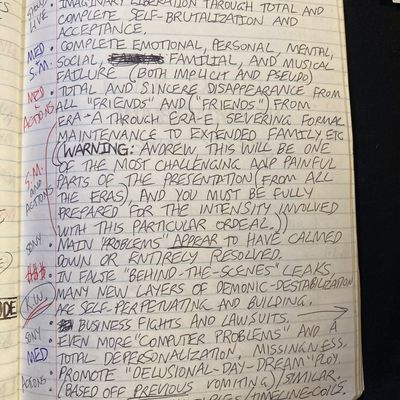 IMAGINARY LIBERATION THROUGH TOTAL AND
LIVE COMPLETE SELF-BRUTALIZATION AND
ACCEPTANCE.
MED • COMPLETE EMOTIONAL, PERSONAL, MENTAL,
S.M. SOCIAL, FAMILIAL, AND MUSICAL
FAILURE (BOTH IMPLICIT AND PSEUDO)
MED • TOTAL AND SINCERE DISAPPEARANCE FROM
ACTIONS ALL "FRIENDS" AND ("FRIENDS") FROM
ERA-A THROUGH ERA-E, SEVERING FORMAL
MAINTENANCE TO EXTENDED FAMILY, ETC
(WARNING: ANDREW, THIS WILL BE ONE
OF THE MOST CHALLENGING AND PAINFUL
S.M. PARTS OF THE PRESENTATION (FROM ALL
AND THE ERAS), AND YOU MUST BE FULLY
ACTIONS PREPARED FOR THE INTENSITY INVOLVED
WITH THIS PARTICULAR ORDEAL.))
SONY • MAIN "PROBLEMS" APPEAR TO HAVE CALMED
DOWN OR ENTIRELY RESOLVED.
• IN FALSE "BEHIND-THE-SCENES" LEAKS,
K.W. MANY NEW LAYERS OF DEMONIC-DESTABILIZATION
ARE SELF-PERPETUATING AND BUILDING.
• BUSINESS FIGHTS AND LAWSUITS. →
SONY • EVEN MORE "COMPUTER PROBLEMS" AND A
MED TOTAL DEPERSONALIZATION, MISSINGNESS.
• PROMOTE "DELUSIONAL-DAY-DREAM" PLOY
ACTIONS (BASED OFF PREVIOUS VOMITING)/SIMILAR.
/TIMELINE-COILS.